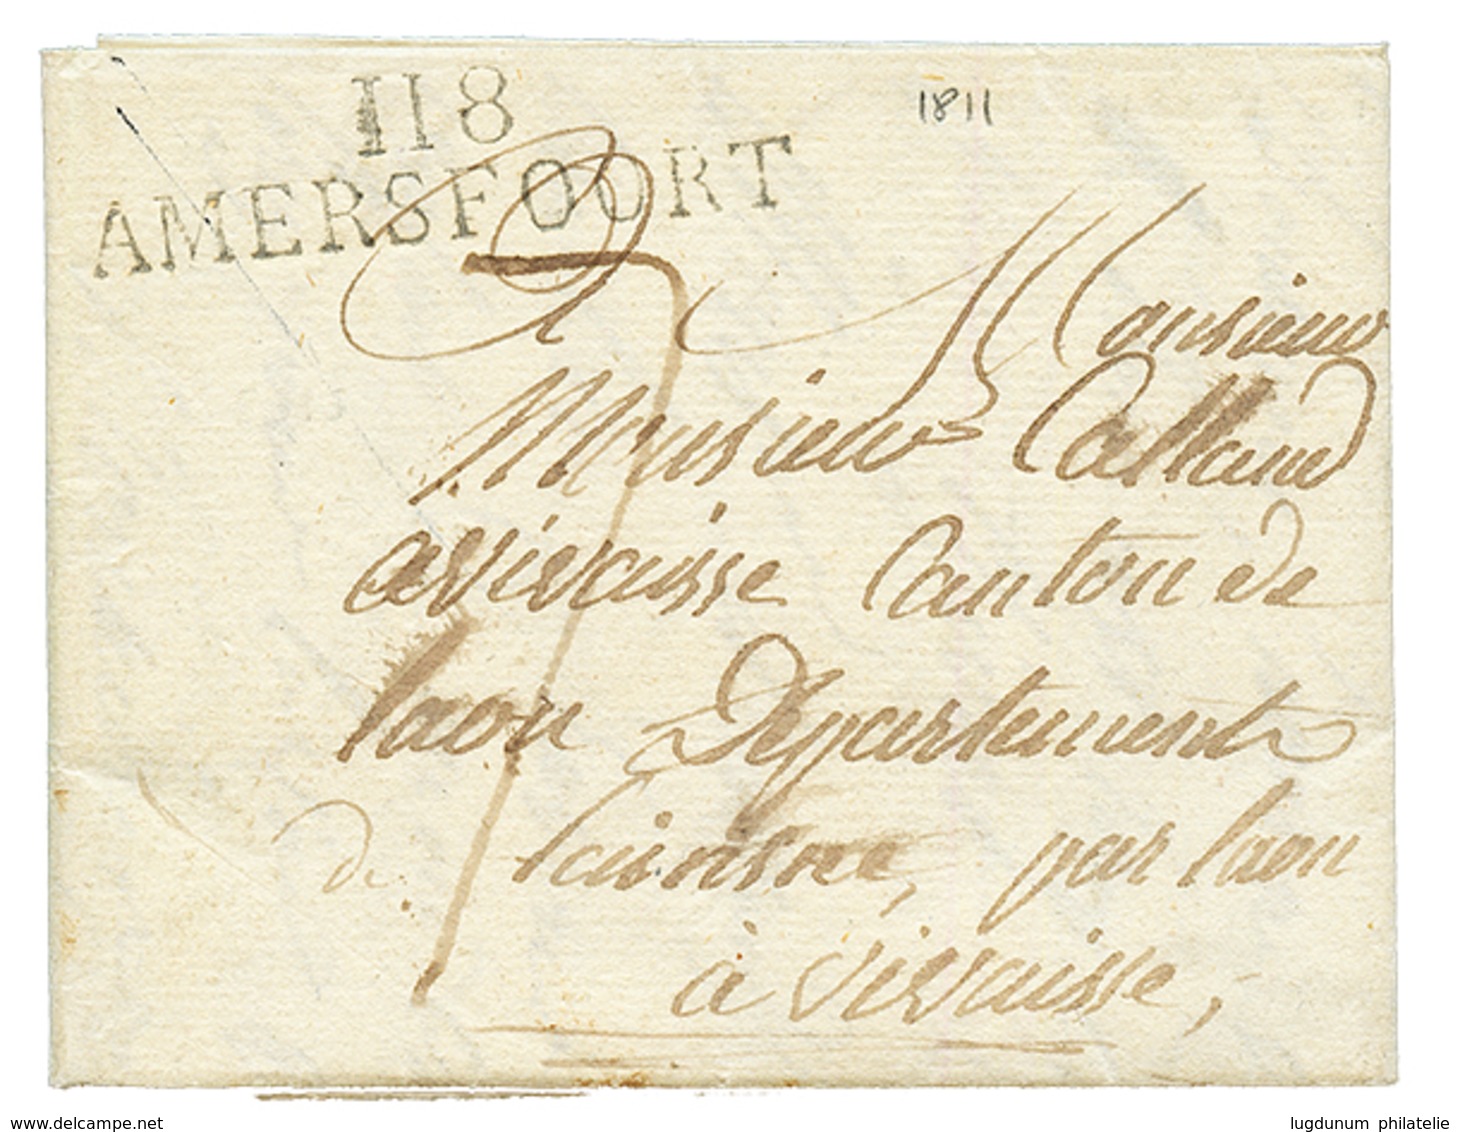 118
AMERSFOORT
1811
7
Monsieur
Monsieur Calland
a vivaisse Canton de
laon Département
de laisne, par laon
à Vivaisse,
www.delcampe.net
lugdunum philatelie